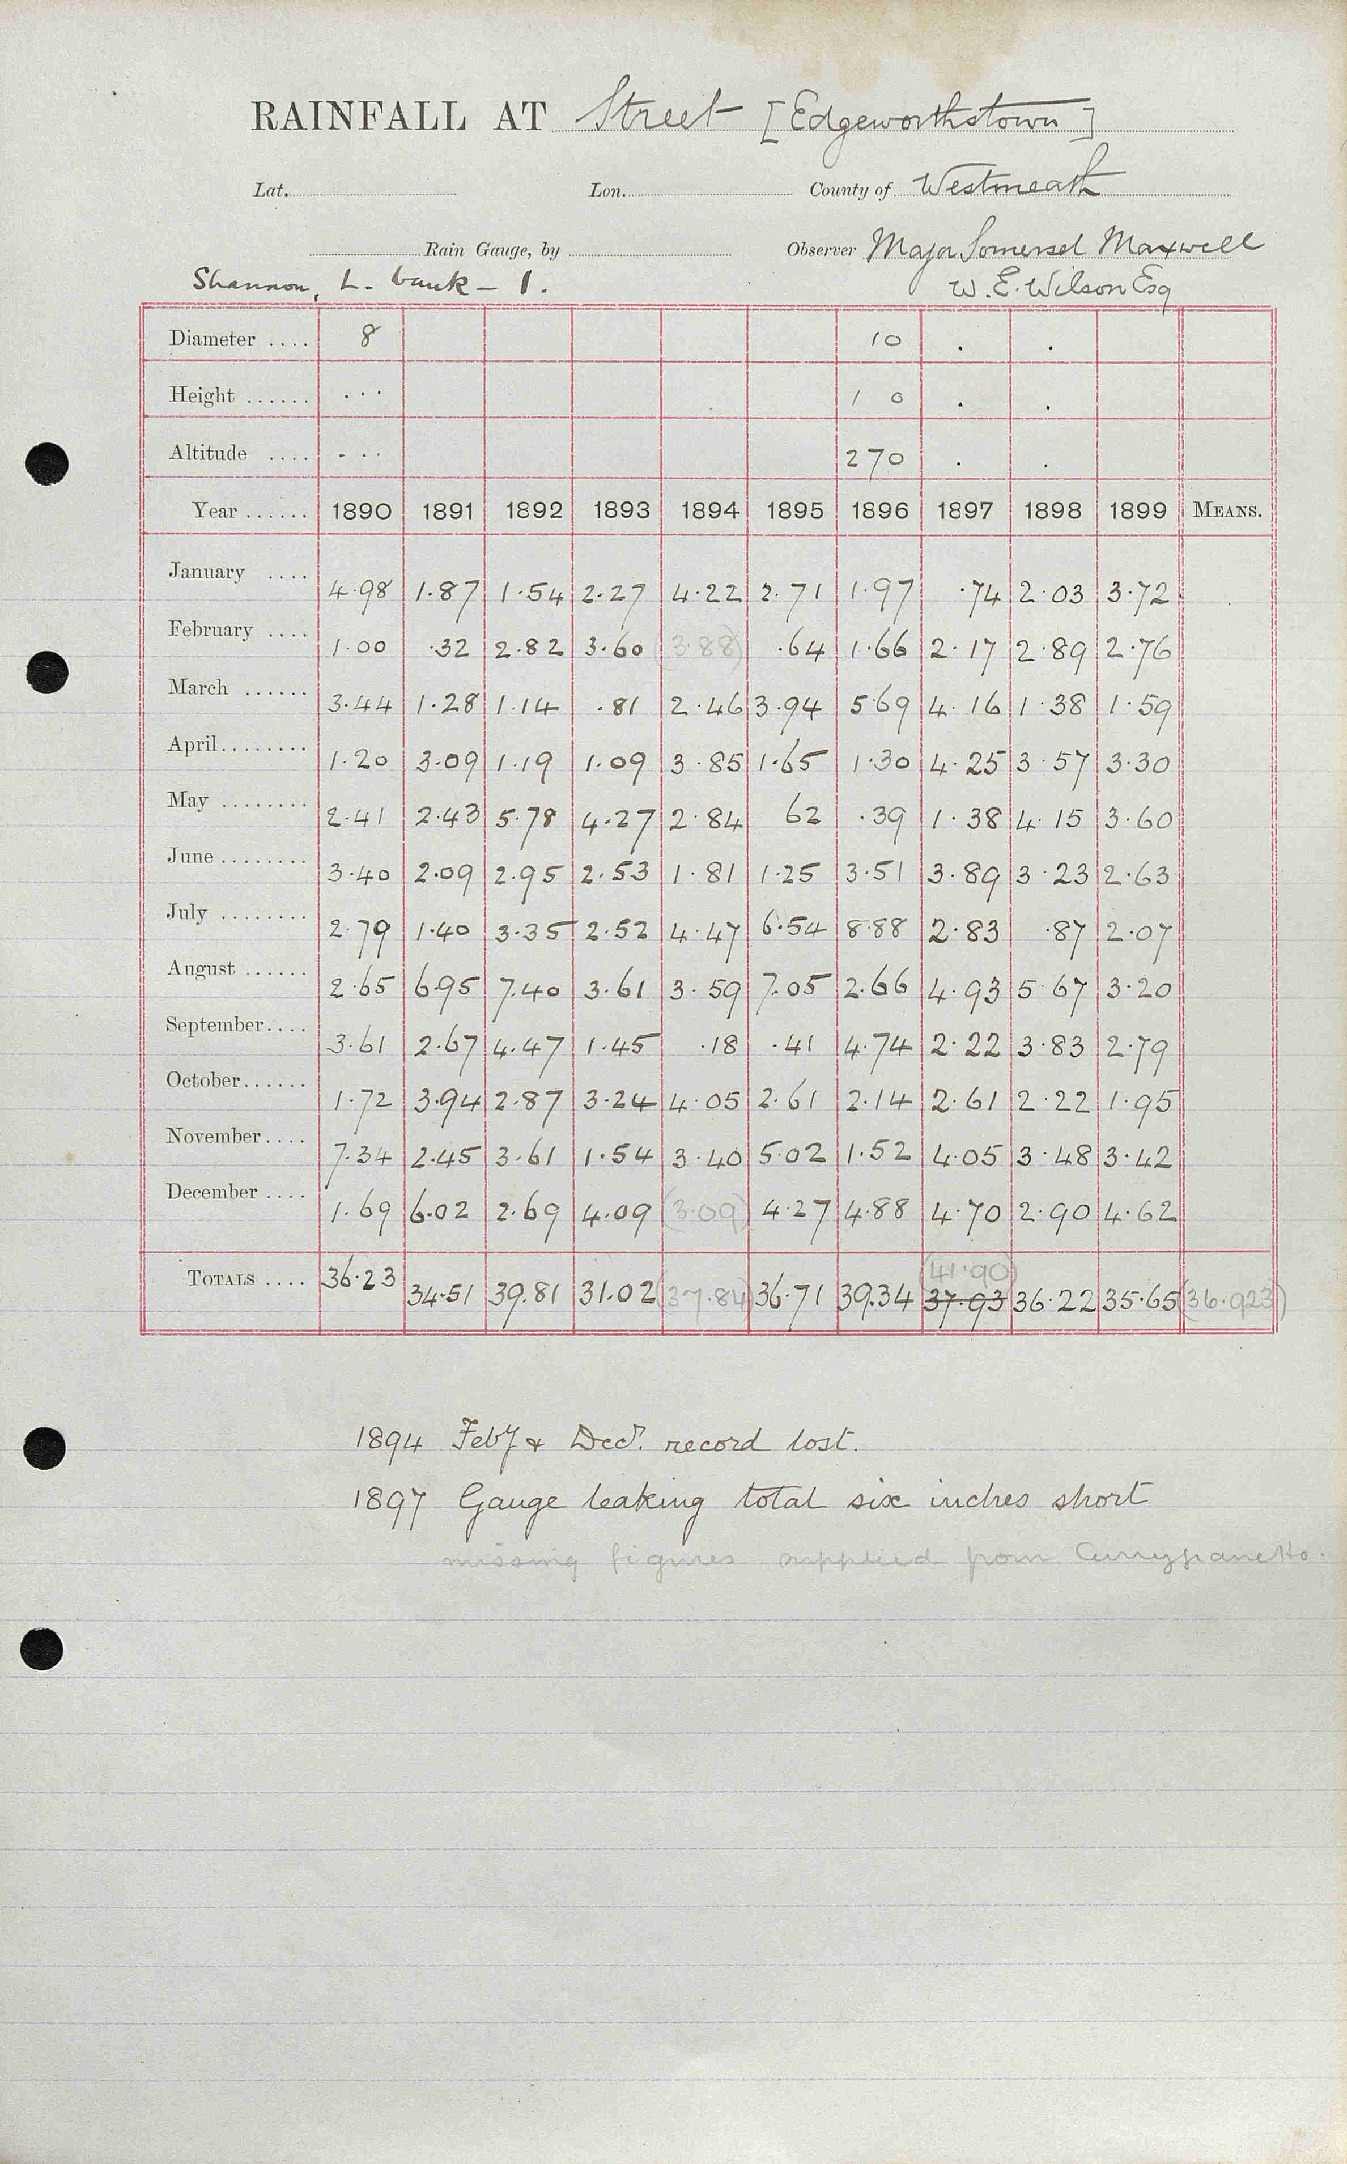 RAINFALL AT Street [Edgeworthstown]
Lat. Lon. County of Westmeath
Rain Gauge, by Observer Major Somerset Maxwell
Shannon, L. bank - 1. W. E. Wilson Esq
Diameter .... 8 10 . .
Height ...... ... 1 0 . .
Altitude .... - .. 270 . .
Year ...... 1890 1891 1892 1893 1894 1895 1896 1897 1898 1899 MEANS.
January .... 4.98 1.87 1.54 2.27 4.22 2.71 1.97 .74 2.03 3.72
February .... 1.00 .32 2.82 3.60 (3.88) .64 1.66 2.17 2.89 2.76
March ...... 3.44 1.28 1.14 .81 2.46 3.94 5.69 4.16 1.38 1.59
April........ 1.20 3.09 1.19 1.09 3.85 1.65 1.30 4.25 3.57 3.30
May ........ 2.41 2.43 5.78 4.27 2.84 62 .39 1.38 4.15 3.60
June ........ 3.40 2.09 2.95 2.53 1.81 1.25 3.51 3.89 3.23 2.63
July ........ 2.79 1.40 3.35 2.52 4.47 6.54 8.88 2.83 .87 2.07
August ...... 2.65 6.95 7.40 3.61 3.59 7.05 2.66 4.93 5.67 3.20
September.... 3.61 2.67 4.47 1.45 .18 .41 4.74 2.22 3.83 2.79
October...... 1.72 3.94 2.87 3.24 4.05 2.61 2.14 2.61 2.22 1.95
November.... 7.34 2.45 3.61 1.54 3.40 5.02 1.52 4.05 3.48 3.42
December .... 1.69 6.02 2.69 4.09 (3.09) 4.27 4.88 4.70 2.90 4.62
(41.90)
TOTALS .... 36.23 34.51 39.81 31.02 (37.84) 36.71 39.34 37.93 36.22 35.65 (36.923)
1894 Feby & Decr. record lost.
1897 Gauge leaking total six inches short
missing figures supplied from